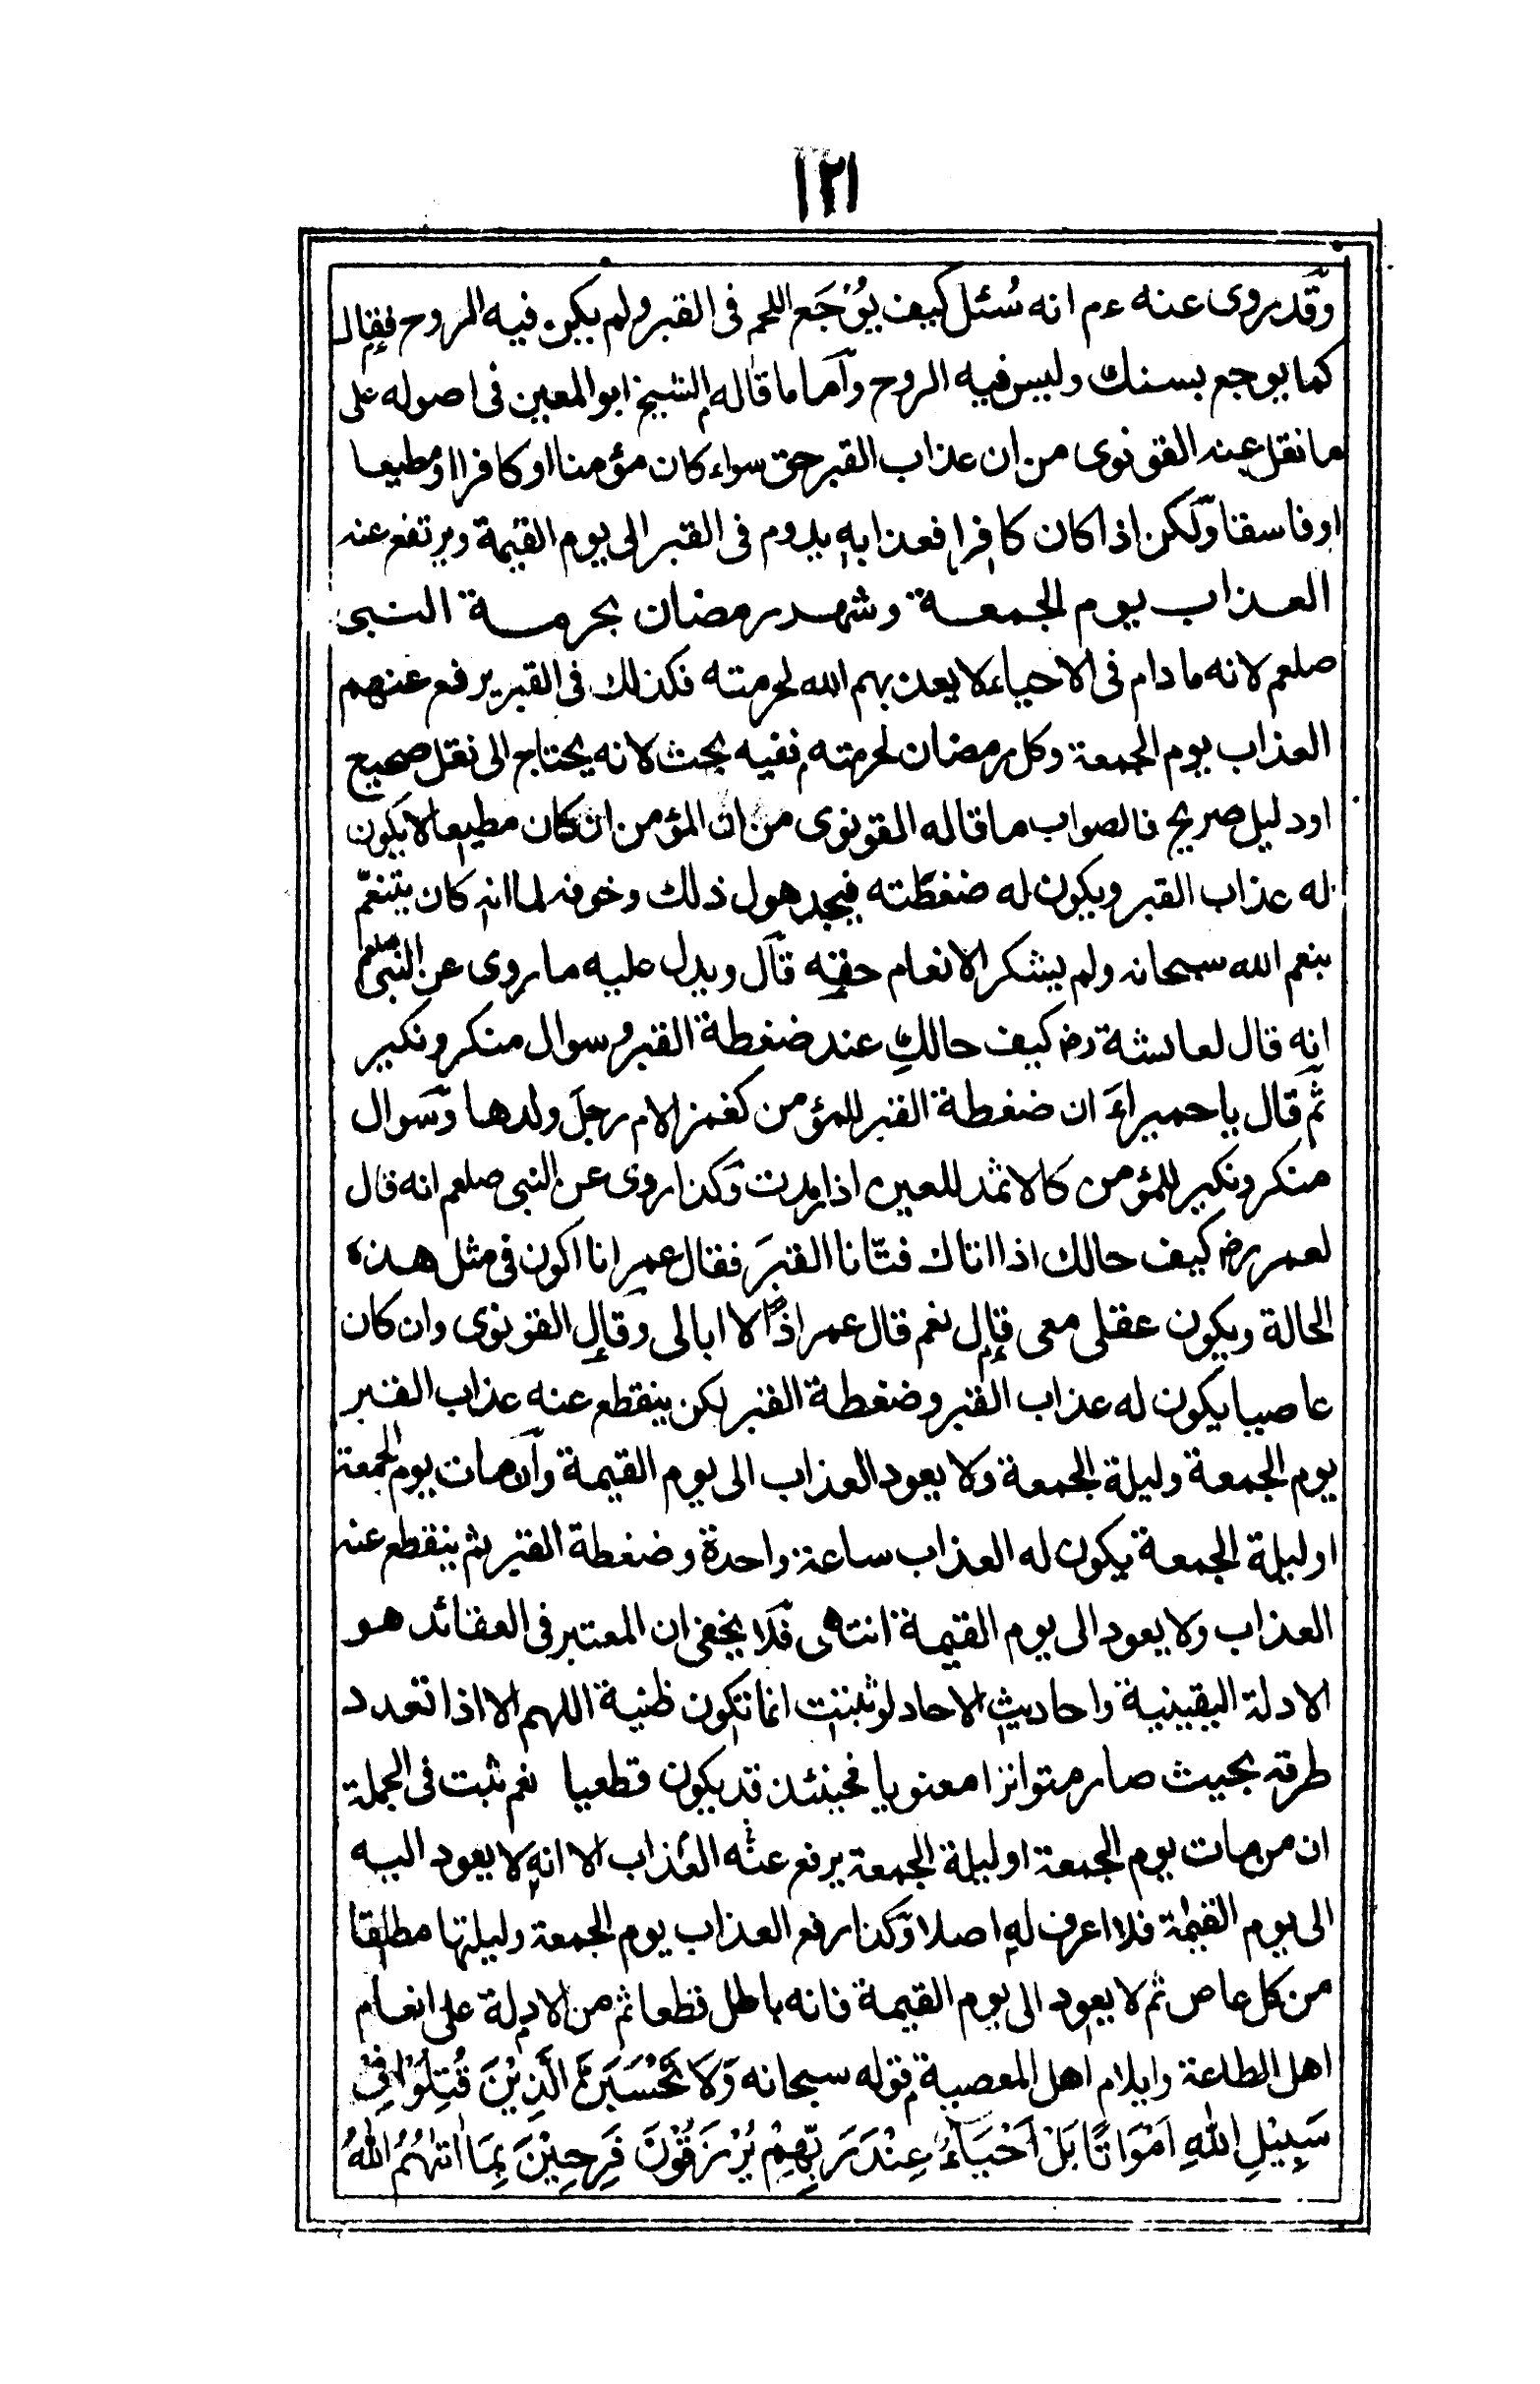 ١٢١
وقد روى عنه عم انه سُئل كيف يُوْجَع اللحم فى القبر ولم يكن فيه الروح فقال
كما يوجع بسنك وليس فيه الروح وآما ما قاله الشيخ ابو المعين فى اصوله على
ما نقل عنه القونوى من ان عذاب القبر حق سواء كان مؤمنا او كافرا او مطيعا
او فاسقا ولكن اذا كان كافرا فعذابه يدوم فى القبر الى يوم القيمة ويرتفع عنه
العذاب يوم الجمعة وشهر رمضان بحرمة النبى
صلعم لانه ما دام فى الاحياء لا يعذبهم الله لحرمته فكذلك فى القبر يرفع عنهم
العذاب يوم الجمعة وكل رمضان لحرمته ففيه بحث لانه يحتاج الى نقل صحيح
او دليل صريح فالصواب ما قاله القونوى من ان المؤمن ان كان مطيعا لا يكون
له عذاب القبر ويكون له ضغطته فيجد هول ذلك وخوفه لما انه كان يتنعّم
بنعم الله سبحانه ولم يشكر الانعام حقه قآل ويدل عليه ما روى عن النبى صلعم
انه قال لعائشة رض كيف حالكِ عند ضغطة القبر وسوال منكر ونكير
ثم قال يا حميراءَ ان ضغطة القبر للمؤمن كغمز الام رجلَ ولدها وسوال
منكر ونكير للمؤمن كالاثمد للعين اذا رمدت وكذا روى عن النبى صلعم انه قال
لعمر رض كيف حالك اذا اتاك فتّانا القبرَ فقال عمر انا اكون فى مثل هذه
الحالة ويكون عقلى معى قال نعم قال عمر اذا لا ابالى وقال القونوى وان كان
عاصيا يكون له عذاب القبر وضغطة القبر لكن ينقطع عنه عذاب القبر
يوم الجمعة وليلة الجمعة ولا يعود العذاب الى يوم القيمة وآن مات يوم الجمعة
او ليلة الجمعة يكون له العذاب ساعة واحدة وضغطة القبر ثم ينقطع عنه
العذاب ولا يعود الى يوم القيمة انتهى فلا يخفى ان المعتبر فى العقائد هو
الادلة اليقينية واحاديث الاحاد لو ثبتت انما تكون ظنية اللهم الا اذا تعدد
طرقه بحيث صار متواترا معنويا فحينئذ قد يكون قطعيا نعم ثبت فى الجملة
ان من مات يوم الجمعة او ليلة الجمعة يرفع عنه العذاب الا انه لا يعود اليه
الى يوم القيمة فلا اعرف له اصلا وكذا رفع العذاب يوم الجمعة وليلتها مطلقا
من كل عاص ثم لا يعود الى يوم القيمة فانه باطل قطعا ثم من الادلة على انعام
اهل الطاعة وايلام اهل المعصية قوله سبحانه وَلَا تَحْسَبَنَّ الَّذِيْنَ قُتِلُوْا فِىْ
سَبِيْلِ اللهِ اَمْوَاتًا بَلْ اَحْيَاءٌ عِنْدَ رَبِّهِمْ يُرْزَقُوْنَ فَرِحِيْنَ بِمَا اٰتٰهُمُ اللهُ